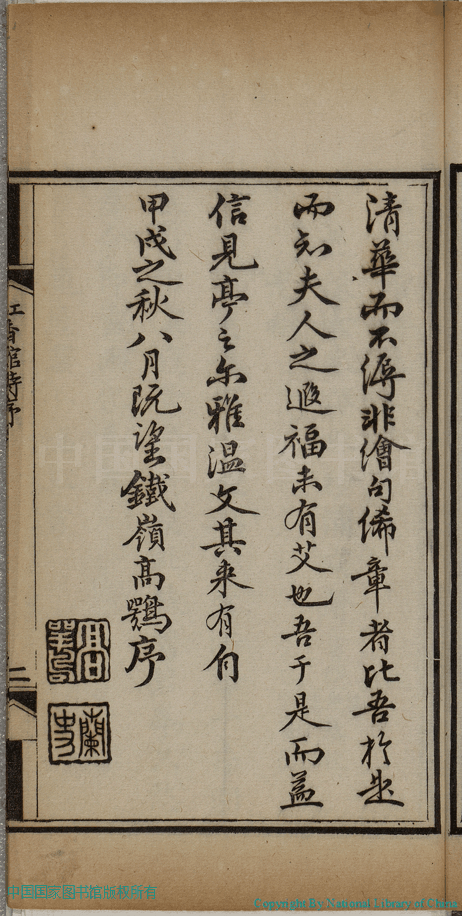 清華而不縟非繪句絺章者比吾於是
而知夫人之遐福未有艾也吾于是而益
信見亭之尔雅温文其来有自
甲戌之秋八月既望鐵嶺高鶚序
高鶚
蘭史
紅香館詩序
二
中国国家图书馆
中国国家图书馆版权所有
Copyright By National Library of China